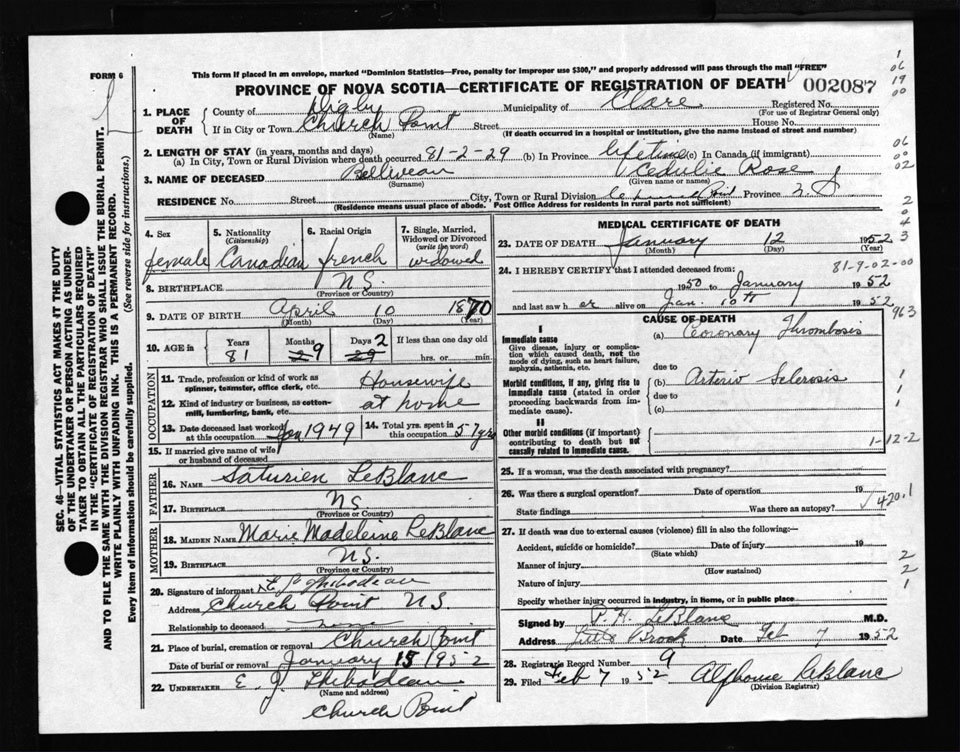 FORM 6
This form if placed in an envelope, marked "Dominion Statistics—Free, penalty for improper use $300," and properly addressed will pass through the mail "FREE"
PROVINCE OF NOVA SCOTIA—CERTIFICATE OF REGISTRATION OF DEATH 002087
1. PLACE OF DEATH
County of Digby Municipality of Clare Registered No.
(Name) (For use of Registrar General only)
If in City or Town Church Point Street House No.
(Name) (If death occurred in a hospital or institution, give the name instead of street and number)
2. LENGTH OF STAY (in years, months and days)
(a) In City, Town or Rural Division where death occurred 81-2-29 (b) In Province lifetime (c) In Canada (if immigrant)
3. NAME OF DECEASED Belliveau Rose
(Surname) (Given name or names)
RESIDENCE No. Street City, Town or Rural Division Church Point Province N.S
(Residence means usual place of abode. Post Office Address for residents in rural parts not sufficient)
4. Sex female
5. Nationality (Citizenship) Canadian
6. Racial Origin french
7. Single, Married, Widowed or Divorced (write the word) widowed
8. BIRTHPLACE N.S.
(Province or Country)
9. DATE OF BIRTH April 10 1870
(Month) (Day) (Year)
10. AGE in Years Months Days If less than one day old
81 2 9 2 29 hrs. or min.
OCCUPATION
11. Trade, profession or kind of work as spinner, teamster, office clerk, etc. Housewife
12. Kind of industry or business, as cotton-mill, lumbering, bank, etc. at home
13. Date deceased last worked at this occupation Jan 1949
14. Total yrs. spent in this occupation 57 yrs
15. If married give name of wife or husband of deceased
FATHER
16. NAME Saturien LeBlanc
17. BIRTHPLACE NS
(Province or Country)
MOTHER
18. MAIDEN NAME Marie Madeleine LeBlanc
19. BIRTHPLACE N.S.
(Province or Country)
20. Signature of informant E J Thibodeau
Address Church Point N.S.
Relationship to deceased none
21. Place of burial, cremation or removal Church Point
Date of burial or removal January 15 1952
22. UNDERTAKER E. J. Thibodeau
(Name and address)
Church Point
MEDICAL CERTIFICATE OF DEATH
23. DATE OF DEATH January 12 1952
(Month) (Day)
81-9-02-00
24. I HEREBY CERTIFY that I attended deceased from:
1950 to January 1952
and last saw h er alive on Jan. 10th 1952
CAUSE OF DEATH
I
Immediate cause
Give disease, injury or complication which caused death, not the mode of dying, such as heart failure, asphyxia, asthenia, etc.
(a) Coronary Thrombosis
due to
Morbid conditions, if any, giving rise to immediate cause (stated in order proceeding backwards from immediate cause).
(b) Arterio Sclerosis
due to
(c)
II
Other morbid conditions (if important) contributing to death but not causally related to immediate cause.
1-12-2
25. If a woman, was the death associated with pregnancy?
26. Was there a surgical operation? Date of operation 19
State findings Was there an autopsy?
420.1
27. If death was due to external causes (violence) fill in also the following:—
Accident, suicide or homicide? Date of injury 19
(State which)
Manner of injury
(How sustained)
Nature of injury
Specify whether injury occurred in industry, in home, or in public place
Signed by P. H. LeBlanc M.D.
Address Little Brook Date Feb 7 1952
28. Registrars Record Number 9
29. Filed Feb 7 1952 Alphonse LeBlanc
(Division Registrar)
SEC. 46—VITAL STATISTICS ACT MAKES IT THE DUTY OF THE UNDERTAKER OR PERSON ACTING AS UNDERTAKER TO OBTAIN ALL THE PARTICULARS REQUIRED IN THE "CERTIFICATE OF REGISTRATION OF DEATH" AND TO FILE THE SAME WITH THE DIVISION REGISTRAR WHO SHALL ISSUE THE BURIAL PERMIT.
WRITE PLAINLY WITH UNFADING INK. THIS IS A PERMANENT RECORD.
Every item of information should be carefully supplied. (See reverse side for instructions.)
1
06
19
00
06
00
02
2
0
4
3
963
1
1
1
2
2
1